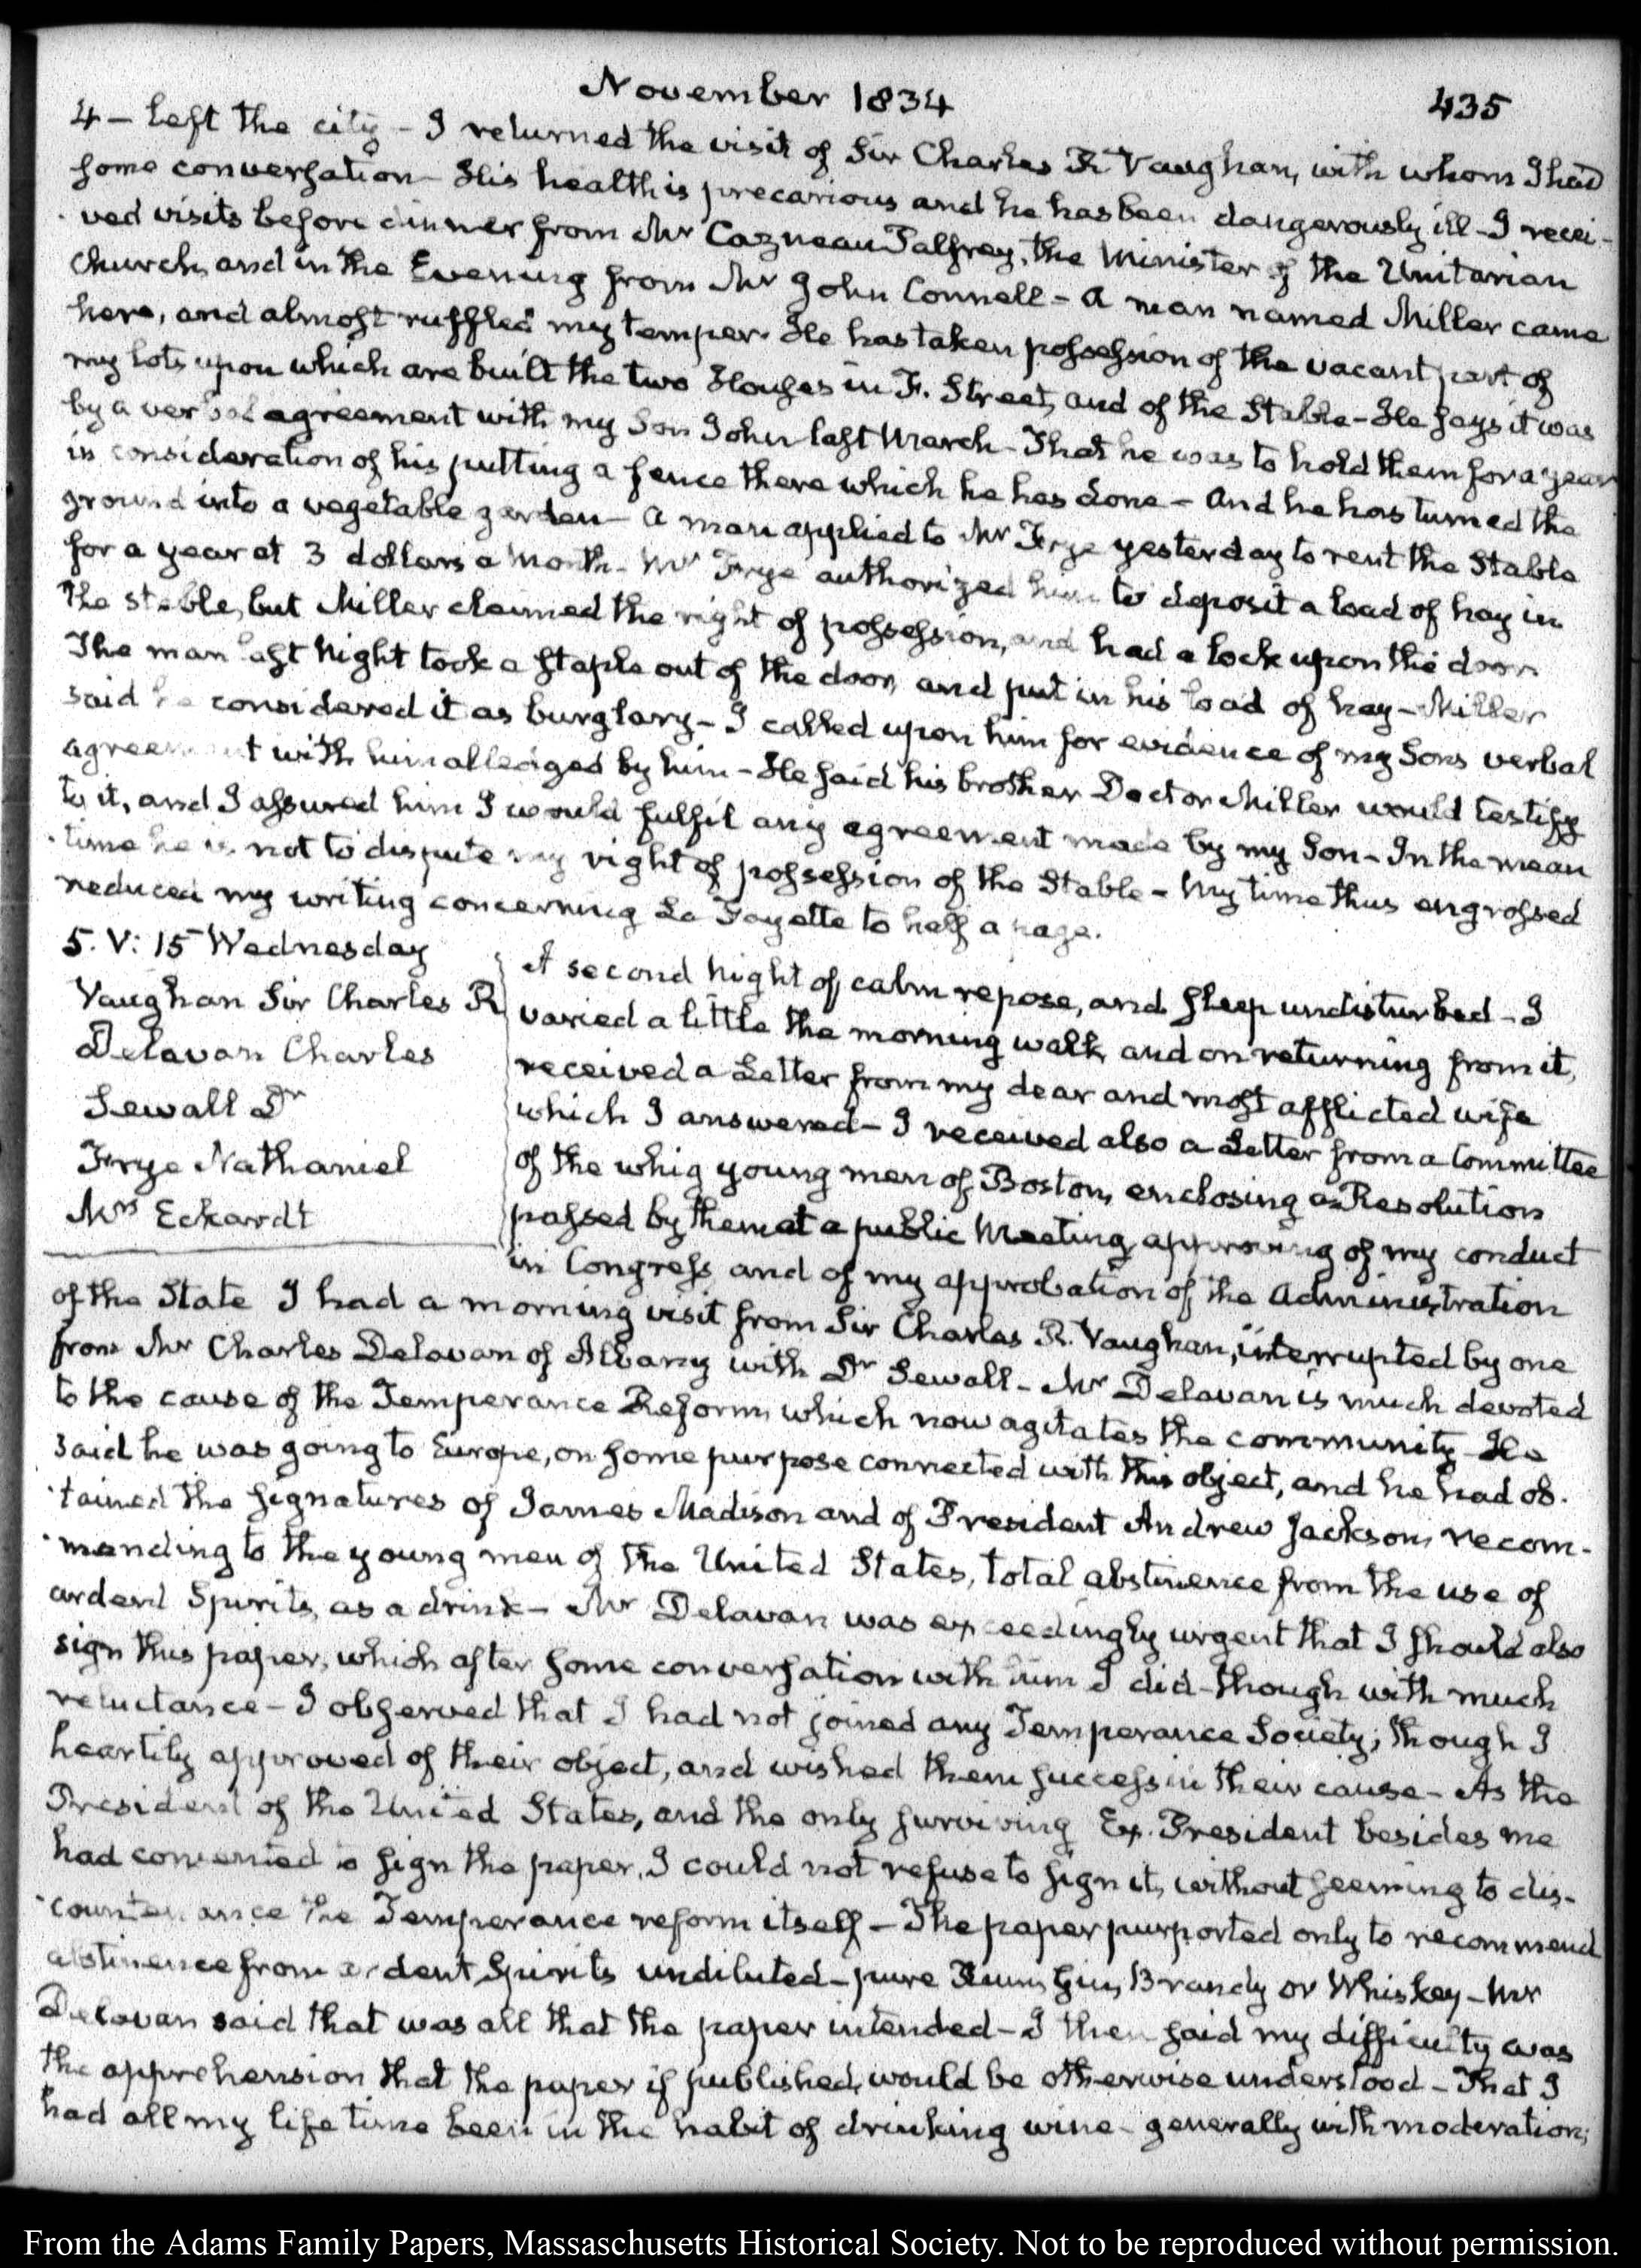 November 1834
435
4 - left the city - I returned the visit of Sir Charles R Vaughan, with whom I had
some conversation - His health is precarious and he has been dangerously ill - I recei-
ved visits before dinner from Mr Cazneau Palfrey, the Minister of the Unitarian
Church, and in the Evening from Mr John Connell - A man named Miller came
here, and almost ruffled my temper. He has taken possession of the vacant part of
my lots upon which are built the two Houses in F. Street, and of the Stable - He says it was
by a verbal agreement with my Son John last March - That he was to hold them for a year
in consideration of his putting a fence there which he has done - And he has turned the
ground into a vegetable garden - A man applied to Mr Frye yesterday to rent the Stable
for a year at 3 dollars a Month - Mr Frye authorized him to deposit a load of hay in
the stable, but Miller claimed the right of possession, and had a lock upon the door
The man last Night took a staple out of the door, and put in his load of hay - Miller
said he considered it as burglary - I called upon him for evidence of my Sons verbal
agreement with him alledged by him - He said his brother Doctor Miller would testify
to it, and I assured him I would fulfil any agreement made by my Son - In the mean
time he is not to dispute my right of possession of the Stable - My time thus engrossed
reduced my writing concerning La Fayette to half a page.
5. V: 15 Wednesday
Vaughan Sir Charles R
Delavan Charles
Sewall Dr
Frye Nathaniel
Mrs Eckardt
A second Night of calm repose, and sleep undisturbed - I
varied a little the morning walk, and on returning from it,
received a Letter from my dear and most afflicted wife
which I answered - I received also a Letter from a Committee
of the whig young men of Boston, enclosing a Resolution
passed by them at a public Meeting, approving of my conduct
in Congress, and of my approbation of the Administration
of the State I had a morning visit from Sir Charles R. Vaughan, interrupted by one
from Mr Charles Delavan of Albany with Dr Sewall - Mr Delavan is much devoted
to the cause of the Temperance Reform, which now agitates the community - He
said he was going to Europe, on some purpose connected with this object, and he had ob-
tained the signatures of James Madison and of President Andrew Jackson, recom-
mending to the young men of the United States, total abstinence from the use of
ardent Spirits, as a drink - Mr Delavan was exceedingly urgent that I should also
sign this paper, which after some conversation with him I did - though with much
reluctance - I observed that I had not joined any Temperance Society; though I
heartily approved of their object, and wished them success in their cause - As the
President of the United States, and the only surviving Ex-President besides me
had consented to sign the paper, I could not refuse to sign it, without seeming to dis-
countenance the Temperance reform itself - The paper purported only to recommend
abstinence from ardent Spirits undiluted - pure Rum, Gin, Brandy or Whiskey - Mr
Delavan said that was all that the paper intended - I then said my difficulty was
the apprehension that the paper if published, would be otherwise understood - That I
had all my life time been in the habit of drinking wine - generally with moderation;
From the Adams Family Papers, Massachusetts Historical Society. Not to be reproduced without permission.